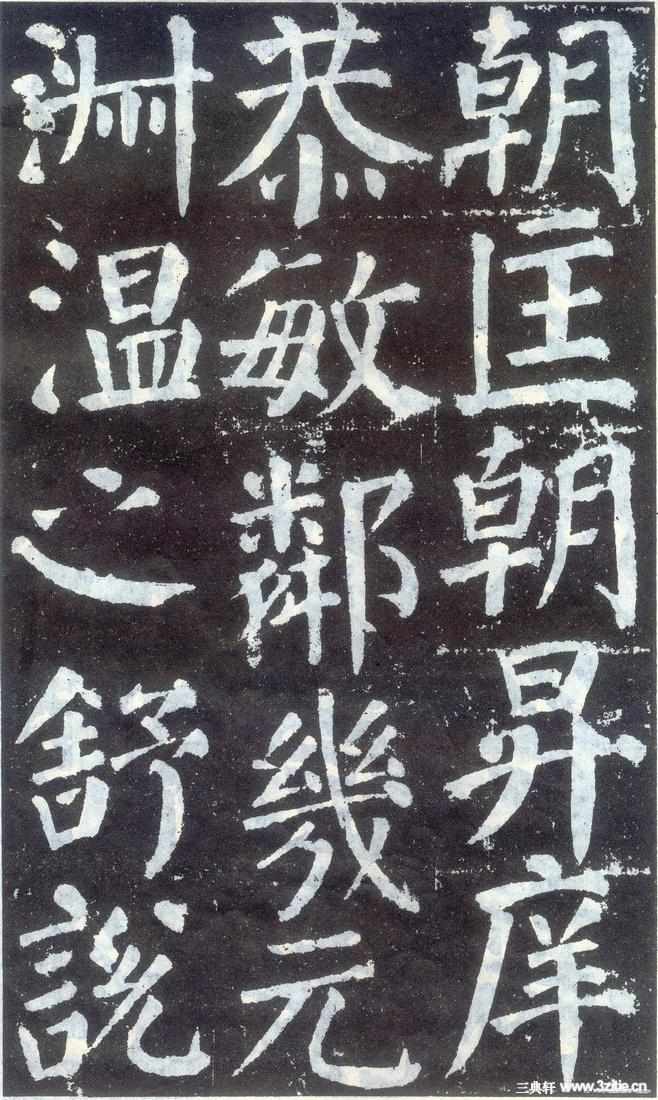 朝匡朝昇庠
恭敏鄰幾元
淵温之舒說
三典轩 www.3zitie.cn